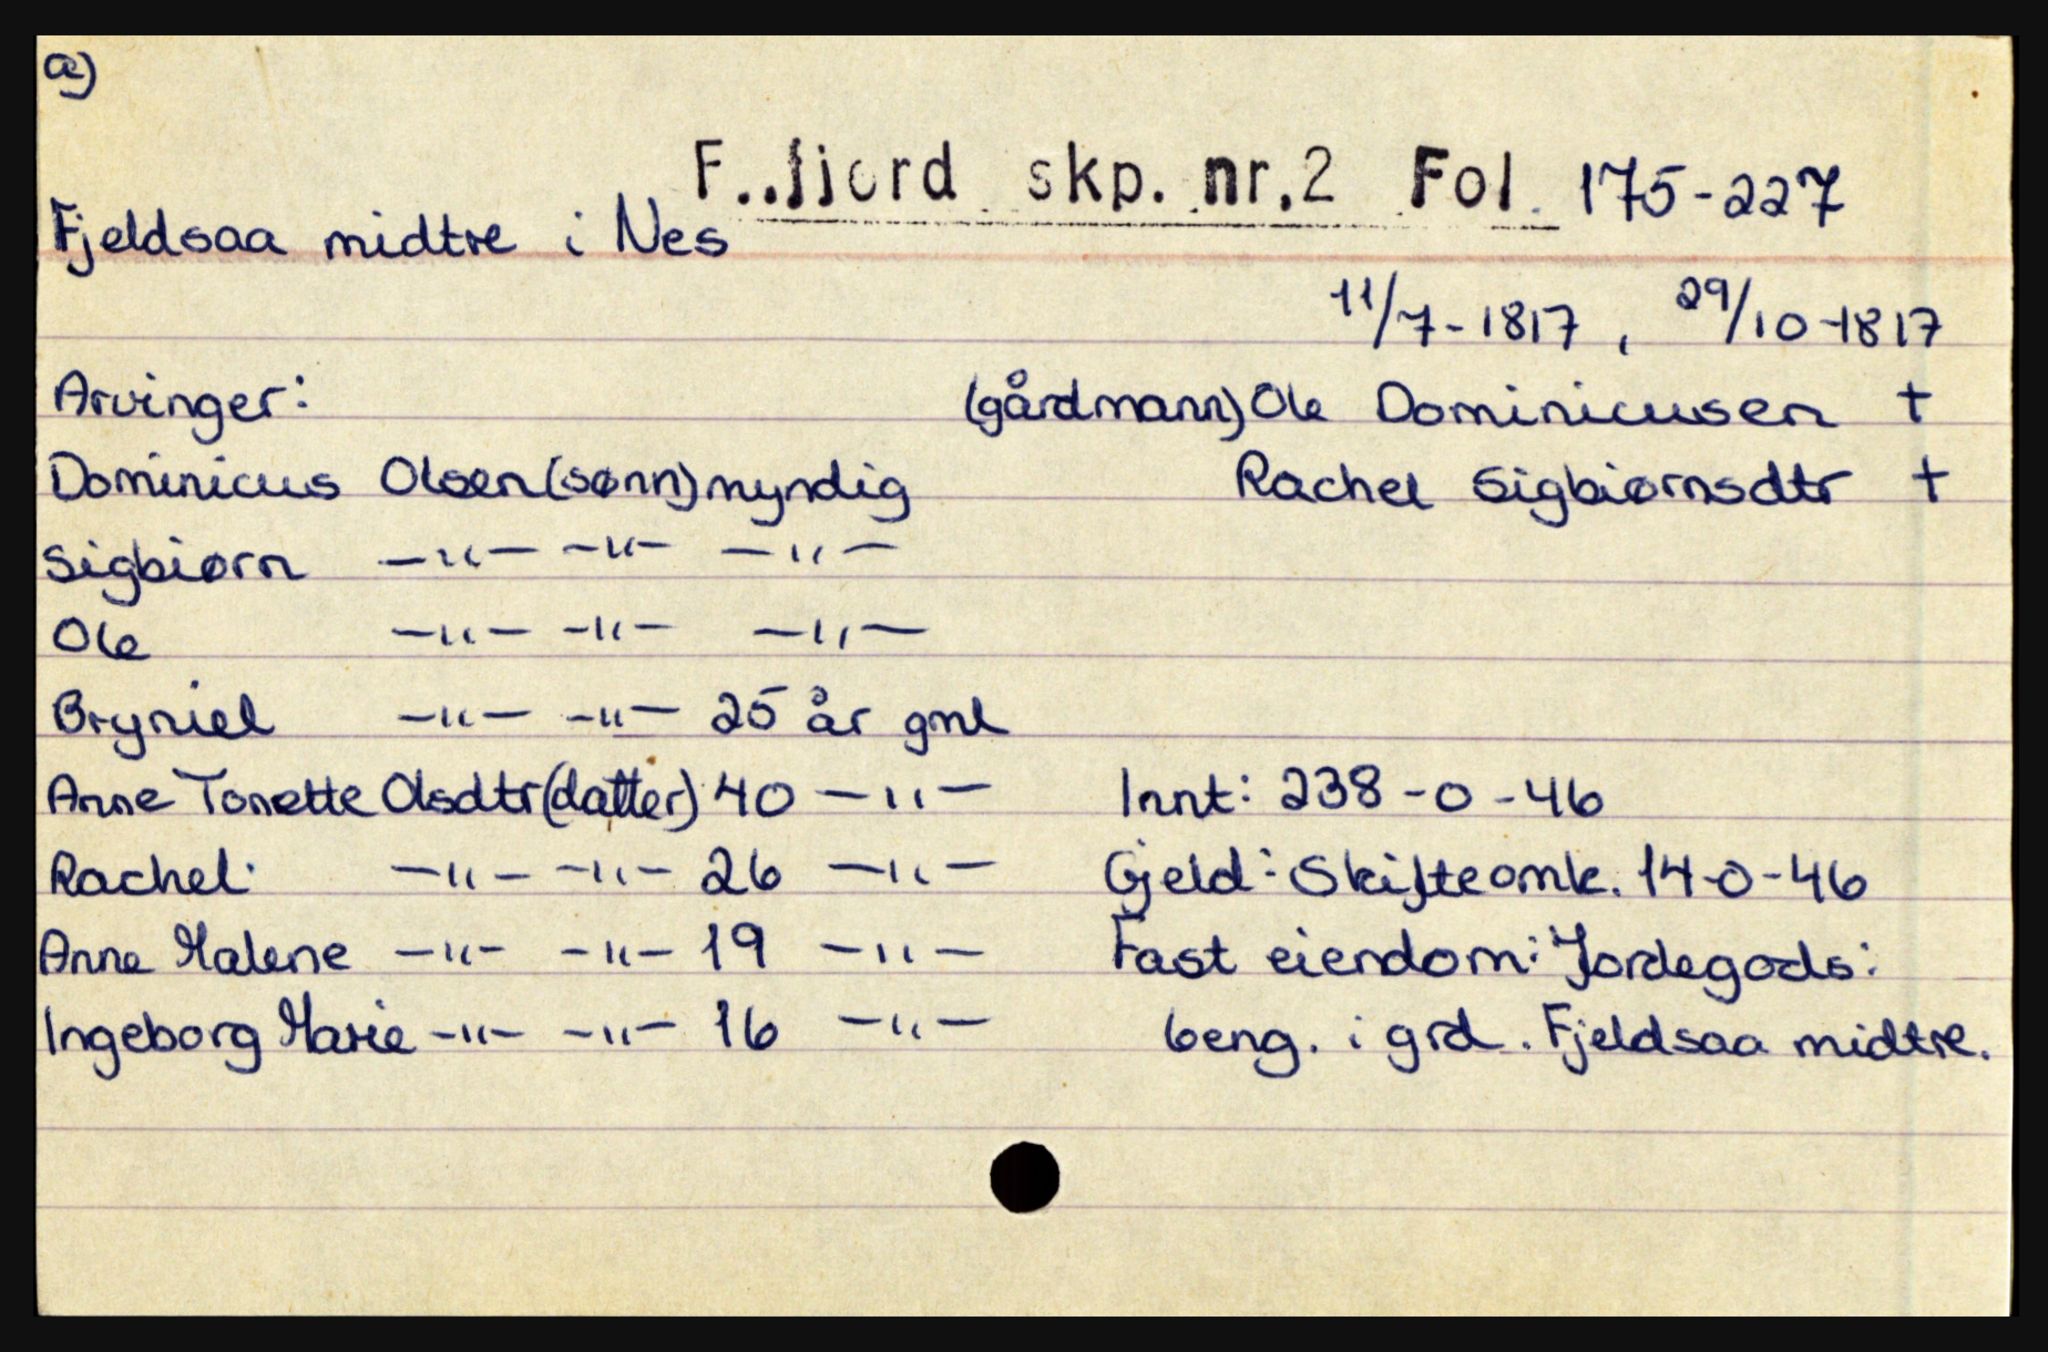 a)
F..fjord skp. nr.2 Fol. 175-227
Fjeldsaa midtre i Nes
11/7-1817, 29/10-1817
Arvinger: (gårdmann) Ole Dominicusen +
Dominicus Olsen (sønn) myndig Rachel Sigbiørnsdtr +
Sigbiørn —"— —"— —"—
Ole —"— —"— —"—
Bryniel —"— —"— 25 år gml
Anne Tonette Olsdtr (datter) 40 —"— Innt: 238-0-46
Rachel —"— —"— 26 —"— Gjeld: Skifteomk. 14-0-46
Anne Malene —"— —"— 19 —"— Fast eiendom: Jordegods:
Ingeborg Marie —"— —"— 16 —"— 6eng. i grd. Fjeldsaa midtre.